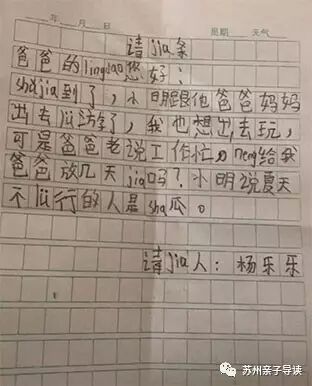 年 月 日 星期 天气
请jia条
爸爸的lingdao您好：
shujia到了，小明跟他爸爸妈妈
出去lü游了，我也想出去玩，
可是爸爸老说工作忙，neng给我
爸爸放几天jia吗？小明说夏天
不lü行的人是sha瓜。
请jia人：杨乐乐
苏州亲子导读